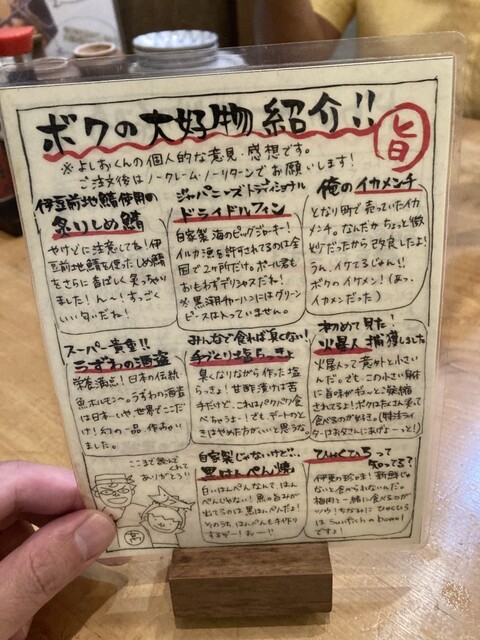 ボクの大好物紹介!!
旨
※よしおくんの個人的な意見・感想です。
ご注文後はノークレーム・ノーリターンでお願いします!
伊豆前地鯖使用の
炙りしめ鯖
やけどに注意してね!伊
豆前地鯖を使ったしめ鯖
をさらに香ばしく炙っちゃい
ました!ん〜!すっごく
いい匂いだね!
ジャパニーズトラディショナル
ドライドルフィン
自家製 海のビッグジョーキー!
イルカ漁を許されてるのは全
国で2ヶ所だけ。ポール君も
おもわずデリシャスだね!
※黒潮ヤローハンにはグリーン
ピースは入っていません。
俺のイカメンチ
となり町で売っていたイカ
メンチ。なんだかちょっと微
妙だったから改良したよ!
うん、イケてるじゃん!!
ボクのイケメン!(あっ、
イカメンだった)
スーパー貴重!!
うずわの酒盗
栄養満点!日本の伝統
魚ホルモン〜。うずわの酒盗
は日本一、いや世界でここだ
け!幻の一品、作るがい
ました。
みんなで食れば臭くない!
手づくり塩らっきょ
臭くなりながら作った塩
らっきょ!甘酢漬けは苦
手だけど、これはパクパク食
べちゃうよ!でも、デートのと
きはやめた方がいいと思うな。
初めて見た!
火星人捕獲しました
火星人って意外と小さい
んだ。でも、この小さい身体
に旨味がギューっとご凝縮
されてるよ!ボクはたくさん乗って
食べるのが好き。(特注ライ
ターはお父さんにあげよーっと!)
ここまで読んで
くれて
ありがとう!
高
自家製じゃないけど…
黒はんぺん焼
白いはんぺんなんて、はん
ぺんじゃない!魚の旨みが
出てるのは黒はんぺんだよ!
そのうち、はんぺんも手作り
するぞー!おー!!
ひゅくひゅくって
知ってる?
伊東の珍味!新鮮じゃ
ないと食べられないんだ。
梅肉と一緒に食べるのが
ツウ!ちなみに ひゅくひゅく
は Sunfish の bowel
ですよ!